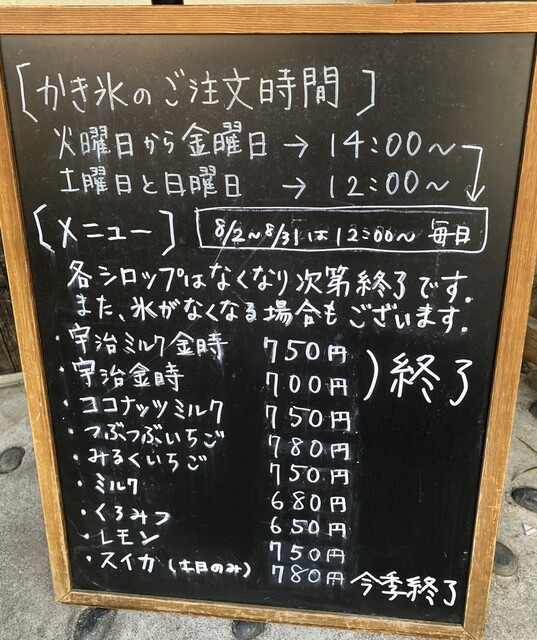 [かき氷のご注文時間]
火曜日から金曜日 → 14:00~
土曜日と日曜日 → 12:00~
[メニュー] 8/2~8/31は12:00~ 毎日
各シロップはなくなり次第終了です.
また、氷がなくなる場合もございます.
・宇治ミルク金時 750円
・宇治金時 700円 )終了
・ココナッツミルク 750円
・つぶつぶいちご 780円
・みるくいちご 750円
・ミルク 680円
・くろみつ 650円
・レモン 750円
・スイカ(土日のみ) 780円 今季終了